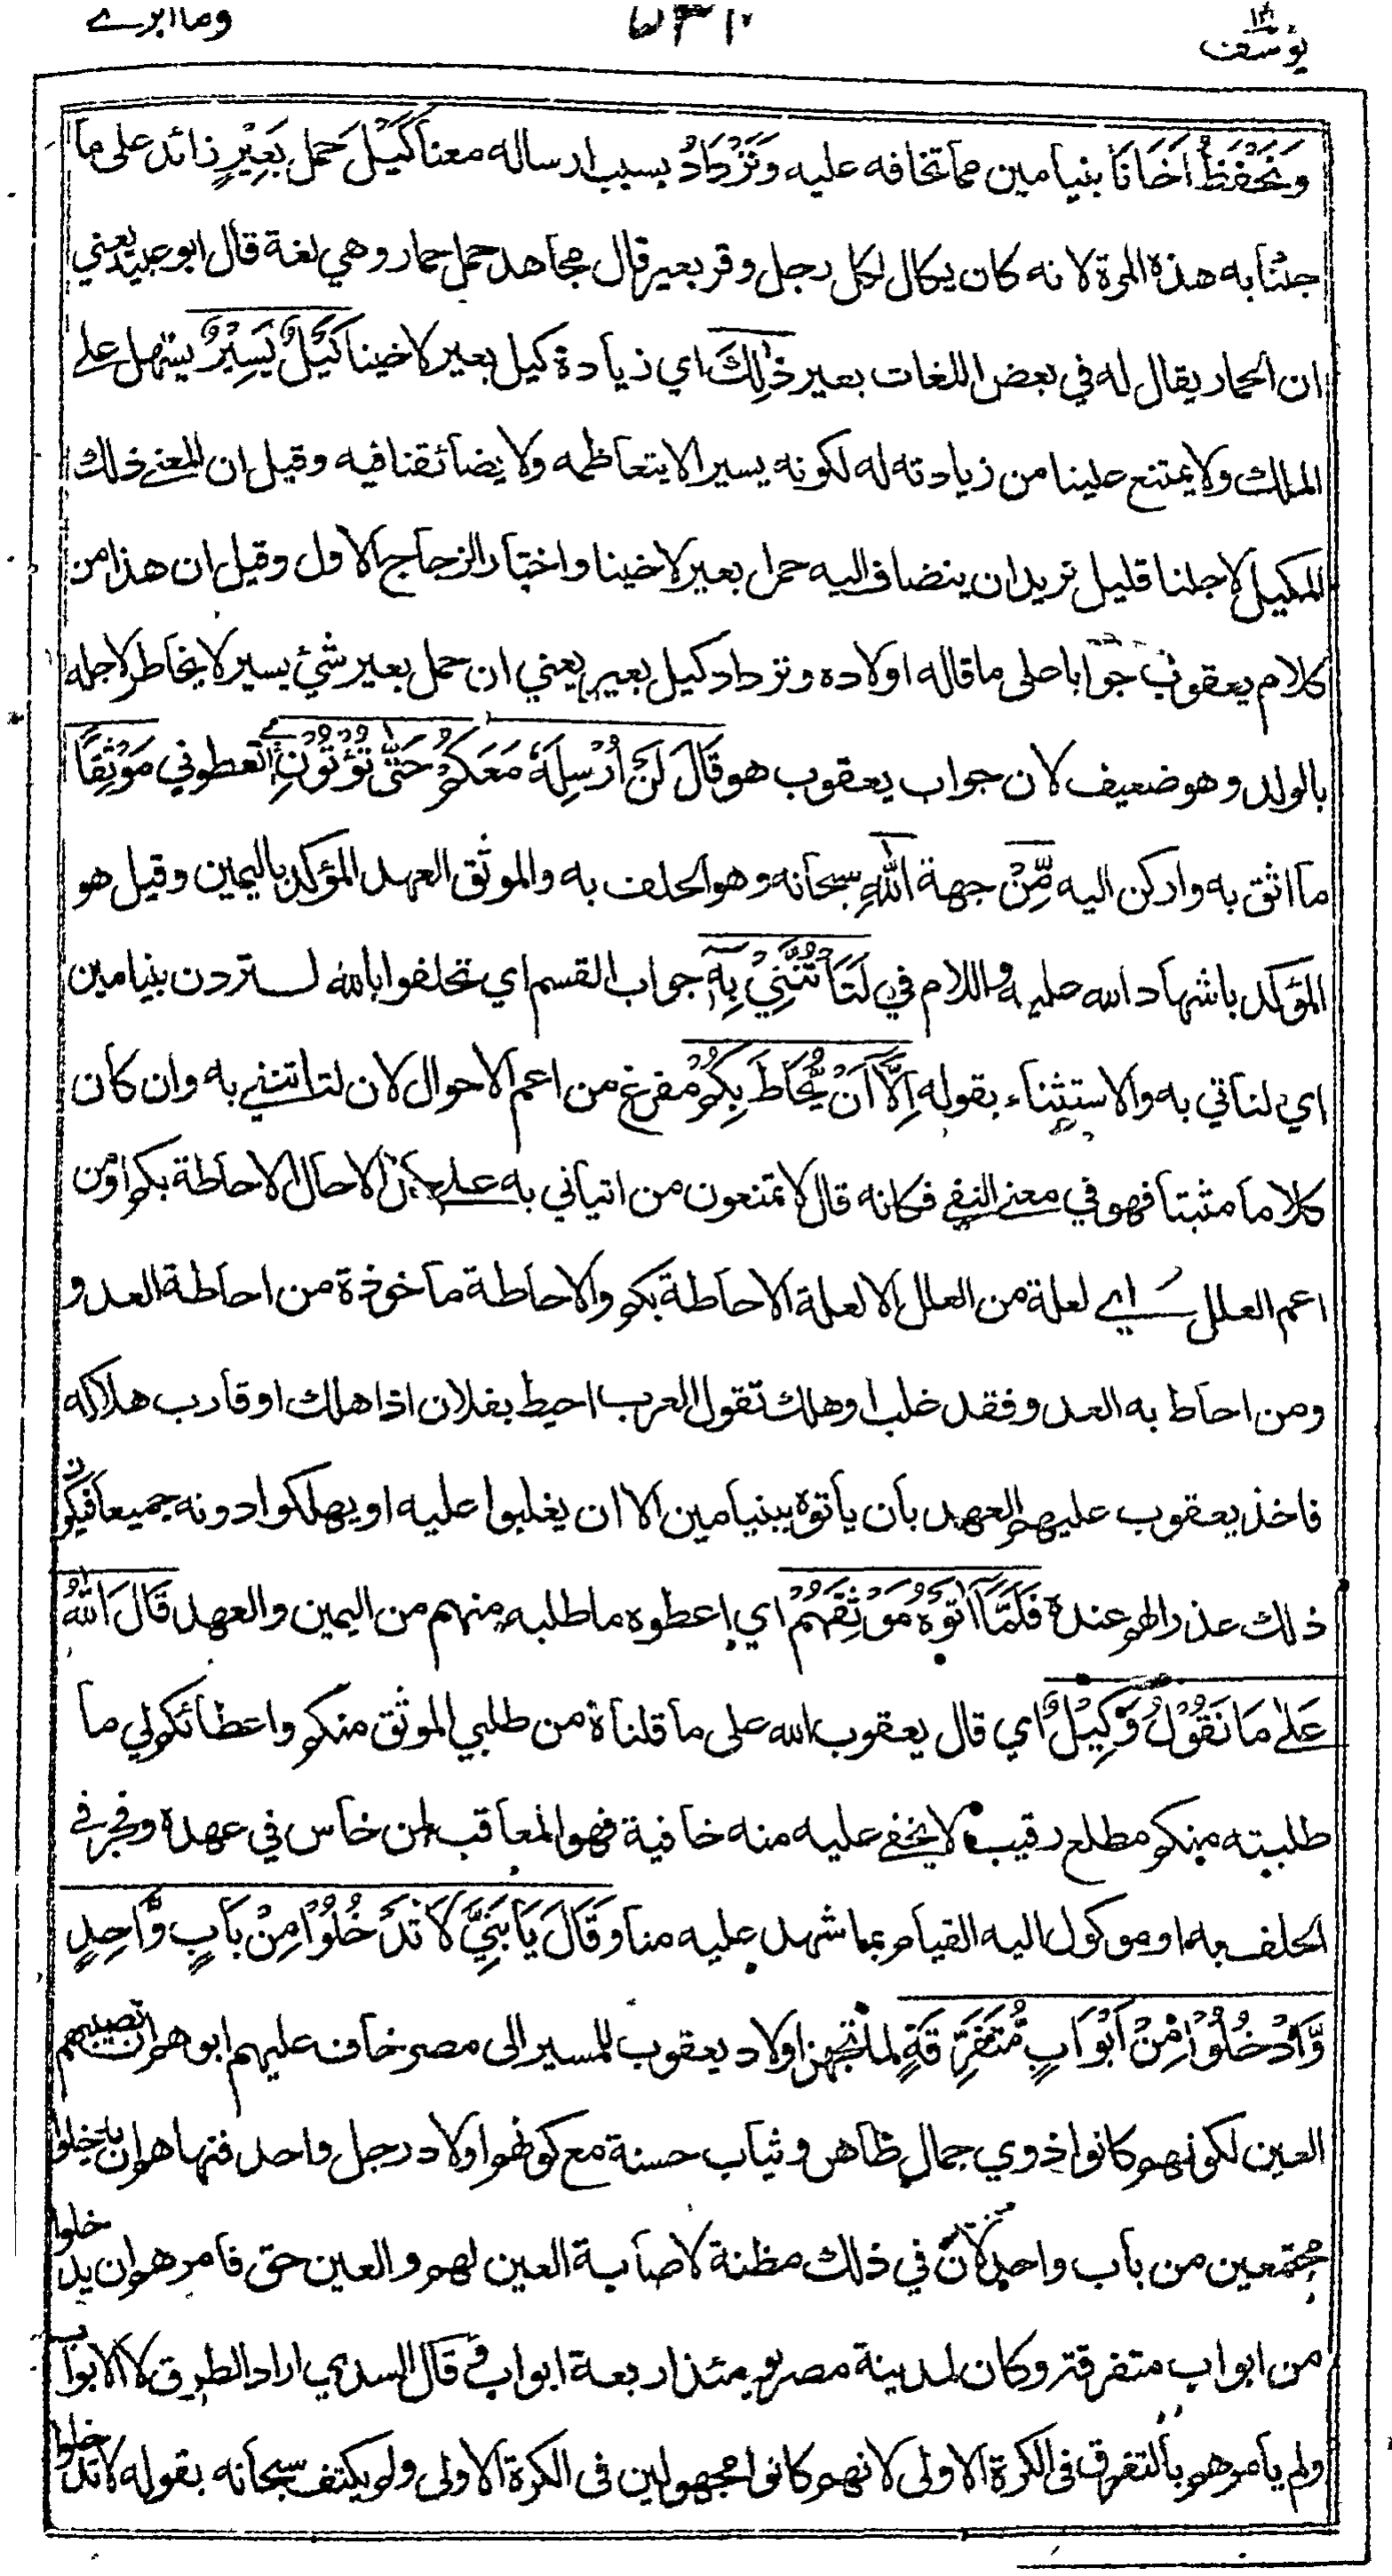 وما ابرے ٤٣٢ يوسف ١٢
وَنَحْفَظُ اَخَانَا بنيامين مما تخافه عليه وَنَزْدَادُ بسبب ارساله معنا كَيْلَ حمل بَعِيْرٍ زائد على ما
جئنا به هذه المرة لانه كان يكال لكل رجل وقر بعير قال مجاهد حمل حمار وهي لغة قال ابو عبيد يعني
ان الحمار يقال له في بعض اللغات بعير ذٰلِكَ اي زيادة كيل بعير لاخينا كَيْلٌ يَّسِيْرٌ يسهل على
الملك ولا يمتنع علينا من زيادته له لكونه يسيرا لا يتعاظمه ولا يضائقنا فيه وقيل ان المعنے ذلك
المكيل لاجلنا قليل نريد ان ينضاف اليه حمل بعير لاخينا واختار الزجاج الاول وقيل ان هذا من
كلام يعقوب جوابا على ما قاله اولاده ونزداد كيل بعير يعني ان حمل بعير شئ يسير لا يخاطر لاجله
بالولد وهو ضعيف لان جواب يعقوب هو قَالَ لَنْ اُرْسِلَهٗ مَعَكُمْ حَتّٰى تُؤْتُوْنِ اي تعطوني مَوْثِقًا
ما اثق به واركن اليه مِّنَ جهة اللّٰهِ سبحانه وهو الحلف به والموثق العهد المؤكد باليمين وقيل هو
المؤكد باشهاد الله عليه واللام في لَتَاْتُنَّنِيْ بِهٖٓ جواب القسم اي تحلفوا بالله لتردن بنيامين
اي لناتي به والاستثناء بقوله اِلَّآ اَنْ يُّحَاطَ بِكُمْ مفرغ من اعم الاحوال لان لتاتنني به وان كان
كلاما مثبتا فهو في معنے النفي فكانه قال لا تمتنعون من اتياني به علے حال الا حال الاحاطة بكم او من
اعم العلل اے لعلة من العلل الا لعلة الاحاطة بكم والاحاطة ماخوذة من احاطة العدو
ومن احاط به العدو فقد غلب او هلك تقول العرب احيط بفلان اذا هلك او قارب هلاكه
فاخذ يعقوب عليهم العهد بان ياتوه ببنيامين الا ان يغلبوا عليه او يهلكوا دونه جميعا فيكون
ذلك عذرا لهم عنده فَلَمَّآ اٰتَوْهُ مَوْثِقَهُمْ اي اعطوه ما طلبه منهم من اليمين والعهد قَالَ اللّٰهُ
عَلٰى مَا نَقُوْلُ وَكِيْلٌ اي قال يعقوب الله على ما قلناه من طلبي الموثق منكم واعطائكم لي ما
طلبته منكم مطلع رقيب لا يخفے عليه منه خافية فهو المعاقب لمن خاس في عهده وفجر في
الحلف به او موكول اليه القيام بما شهد عليه منا وَقَالَ يَا بَنِيَّ لَا تَدْخُلُوْا مِنْ بَابٍ وَّاحِدٍ
وَّادْخُلُوْا مِنْ اَبْوَابٍ مُّتَفَرِّقَةٍ لما تجهز اولاد يعقوب للمسير الى مصر خاف عليهم ابوهم ان تصيبهم
العين لكونهم كانوا ذوي جمال ظاهر وثياب حسنة مع كونهم اولاد رجل واحد فنهاهم ان يدخلوا
مجتمعين من باب واحد لان في ذلك مظنة لاصابة العين لهم والعين حق فامرهم ان يدخلوا
من ابواب متفرقة وكان لمدينة مصر يومئذ اربعة ابواب قال السدي اراد الطرق لا الابواب
ولم يامرهم بالتفرق في الكرة الاولى لانهم كانوا مجهولين في الكرة الاولى ولم يكتف سبحانه بقوله لا تدخلوا